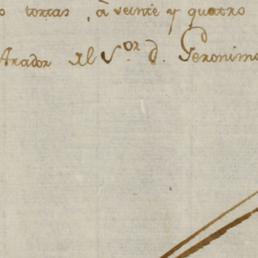 o tortas, à veinte y quatro
Arador del S.or d. Geronimo